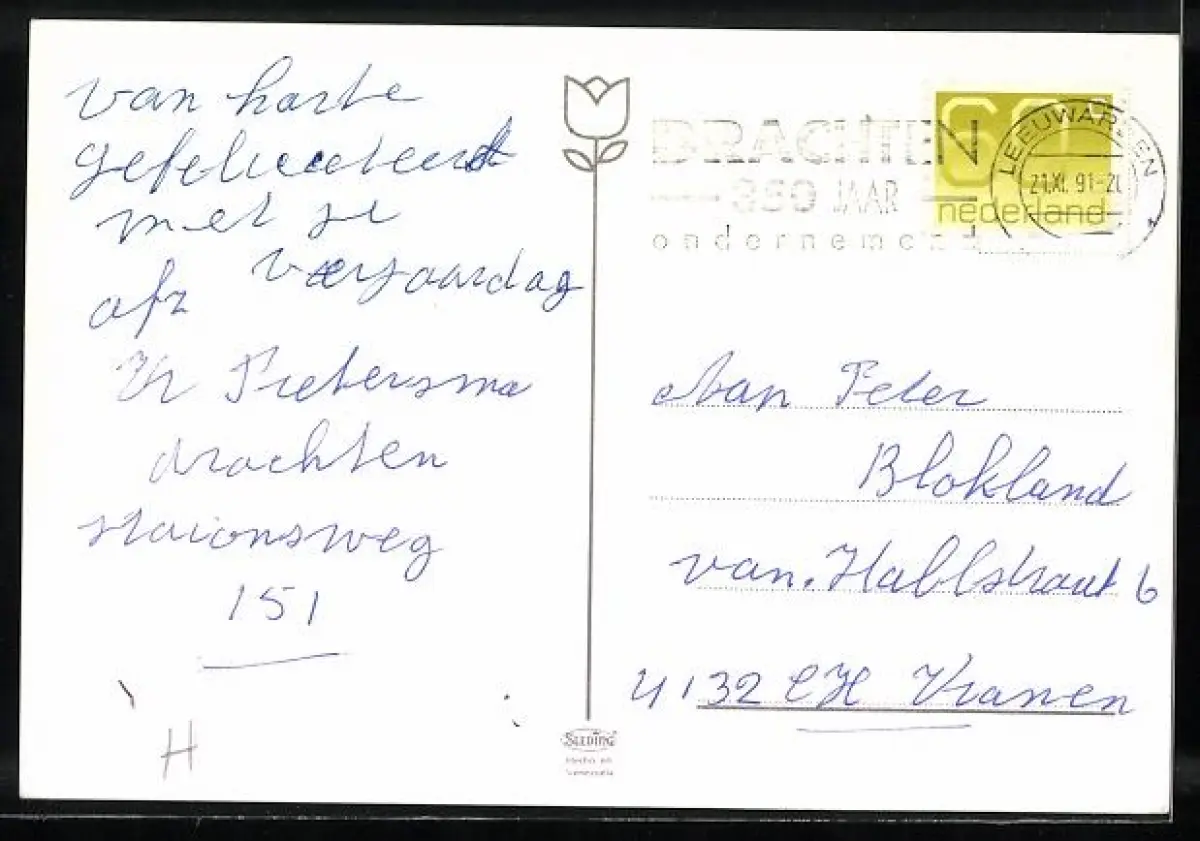 van harte
gefeliciteerd
met je
verjaardag
afz
Pietersma
drachten
staionsweg
151
H
DRACHTEN
350 JAAR
ondernemend
60
nederland
LEEUWARDEN
21.XI.91-20
Aan Peter
Blokland
van. Hallstraat 6
4132 CH Vianen
SLEDING
Hecho en
Venezuela